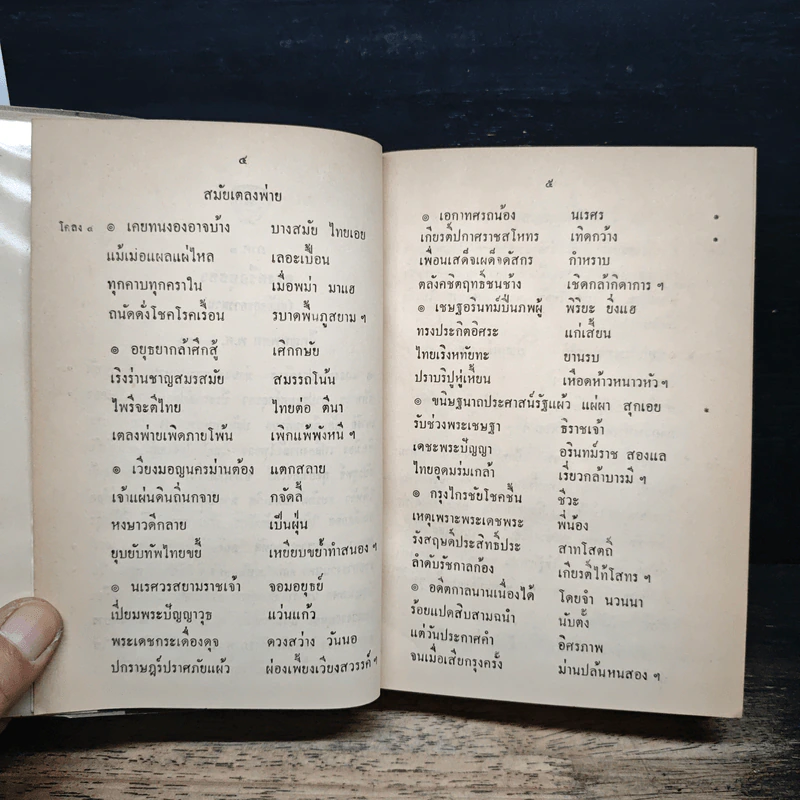 ๔
สมัยเตลงพ่าย
โคลง ๔ ๏ เคยทนงองอาจบ้าง บางสมัย ไทยเอย
แม้เม่อแผลแผ่ไหล เลอะเปื้อน
ทุกคาบทุกคราใน เมื่อพม่า มาแฮ
ถนัดดั่งโชคโรคเรื้อน รบาดพื้นภูสยาม ฯ
๏ อยุธยากล้าศึกสู้ เศิกกษัย
เริงร่านชาญสมรสมัย สมรรถโน้น
ไพรีจะตีไทย ไทยต่อ ตีนา
เตลงพ่ายเพิดภายโพ้น เพิกแพ้พังหนี ฯ
๏ เวียงมอญนครม่านต้อง แตกสลาย
เจ้าแผ่นดินถิ่นกจาย กจัดลี้
หงษาวดีกลาย เป็นฝุ่น
ยุบยับทัพไทยขยี้ เหยียบขย้ำทำสนอง ฯ
๏ นเรศวรสยามราชเจ้า จอมอยุธย์
เปี่ยมพระปัญญาวุธ แว่นแก้ว
พระเดชกระเดื่องดุจ ดวงสว่าง วันนอ
ปกราษฎร์ปราศภัยแผ้ว ผ่องเพี้ยงเวียงสวรรค์ ฯ
๕
๏ เอกาทศรถน้อง นเรศร
เกียรติ์ปกาศราชสโหทร เทิดกว้าง
เพื่อนเสด็จเผด็จดัสกร กำหราบ
ตลังคชิตฤทธิ์ชนช้าง เชิดกล้ากิดาการ ฯ
๏ เชษฐอรินทม์ปิ่นภพผู้ พิริยะ ยิ่งแฮ
ทรงประกิตอิศระ แก่เสี้ยน
ไทยเริงหทัยทะ ยานรบ
ปราบริปูหู่เหี้ยน เหือดห้าวหนาวหัว ฯ
๏ ขนิษฐนาถประศาสน์รัฐแผ้ว แผ่ผา สุกเอย
รับช่วงพระเชษฐา ธิราชเจ้า
เดชะพระปัญญา อรินทม์ราช สองแล
ไทยอุดมร่มเกล้า เรี่ยวกล้าบารมี ฯ
๏ กรุงไกรชัยโชคชื่น ชีวะ
เหตุเพราะพระเดชพระ พี่น้อง
รังสฤษดิ์ประสิทธิ์ประ สาทโสตถิ์
ลำดับรัชกาลก้อง เกียรติ์ไท้โสทร ฯ
๏ อดีตกาลนานเนื่องได้ โดยจำ นวนนา
ร้อยแปดสิบสามฉนำ นับตั้ง
แต่วันประกาศคำ อิศรภาพ
จนเมื่อเสียกรุงครั้ง ม่านปล้นหนสอง ฯ